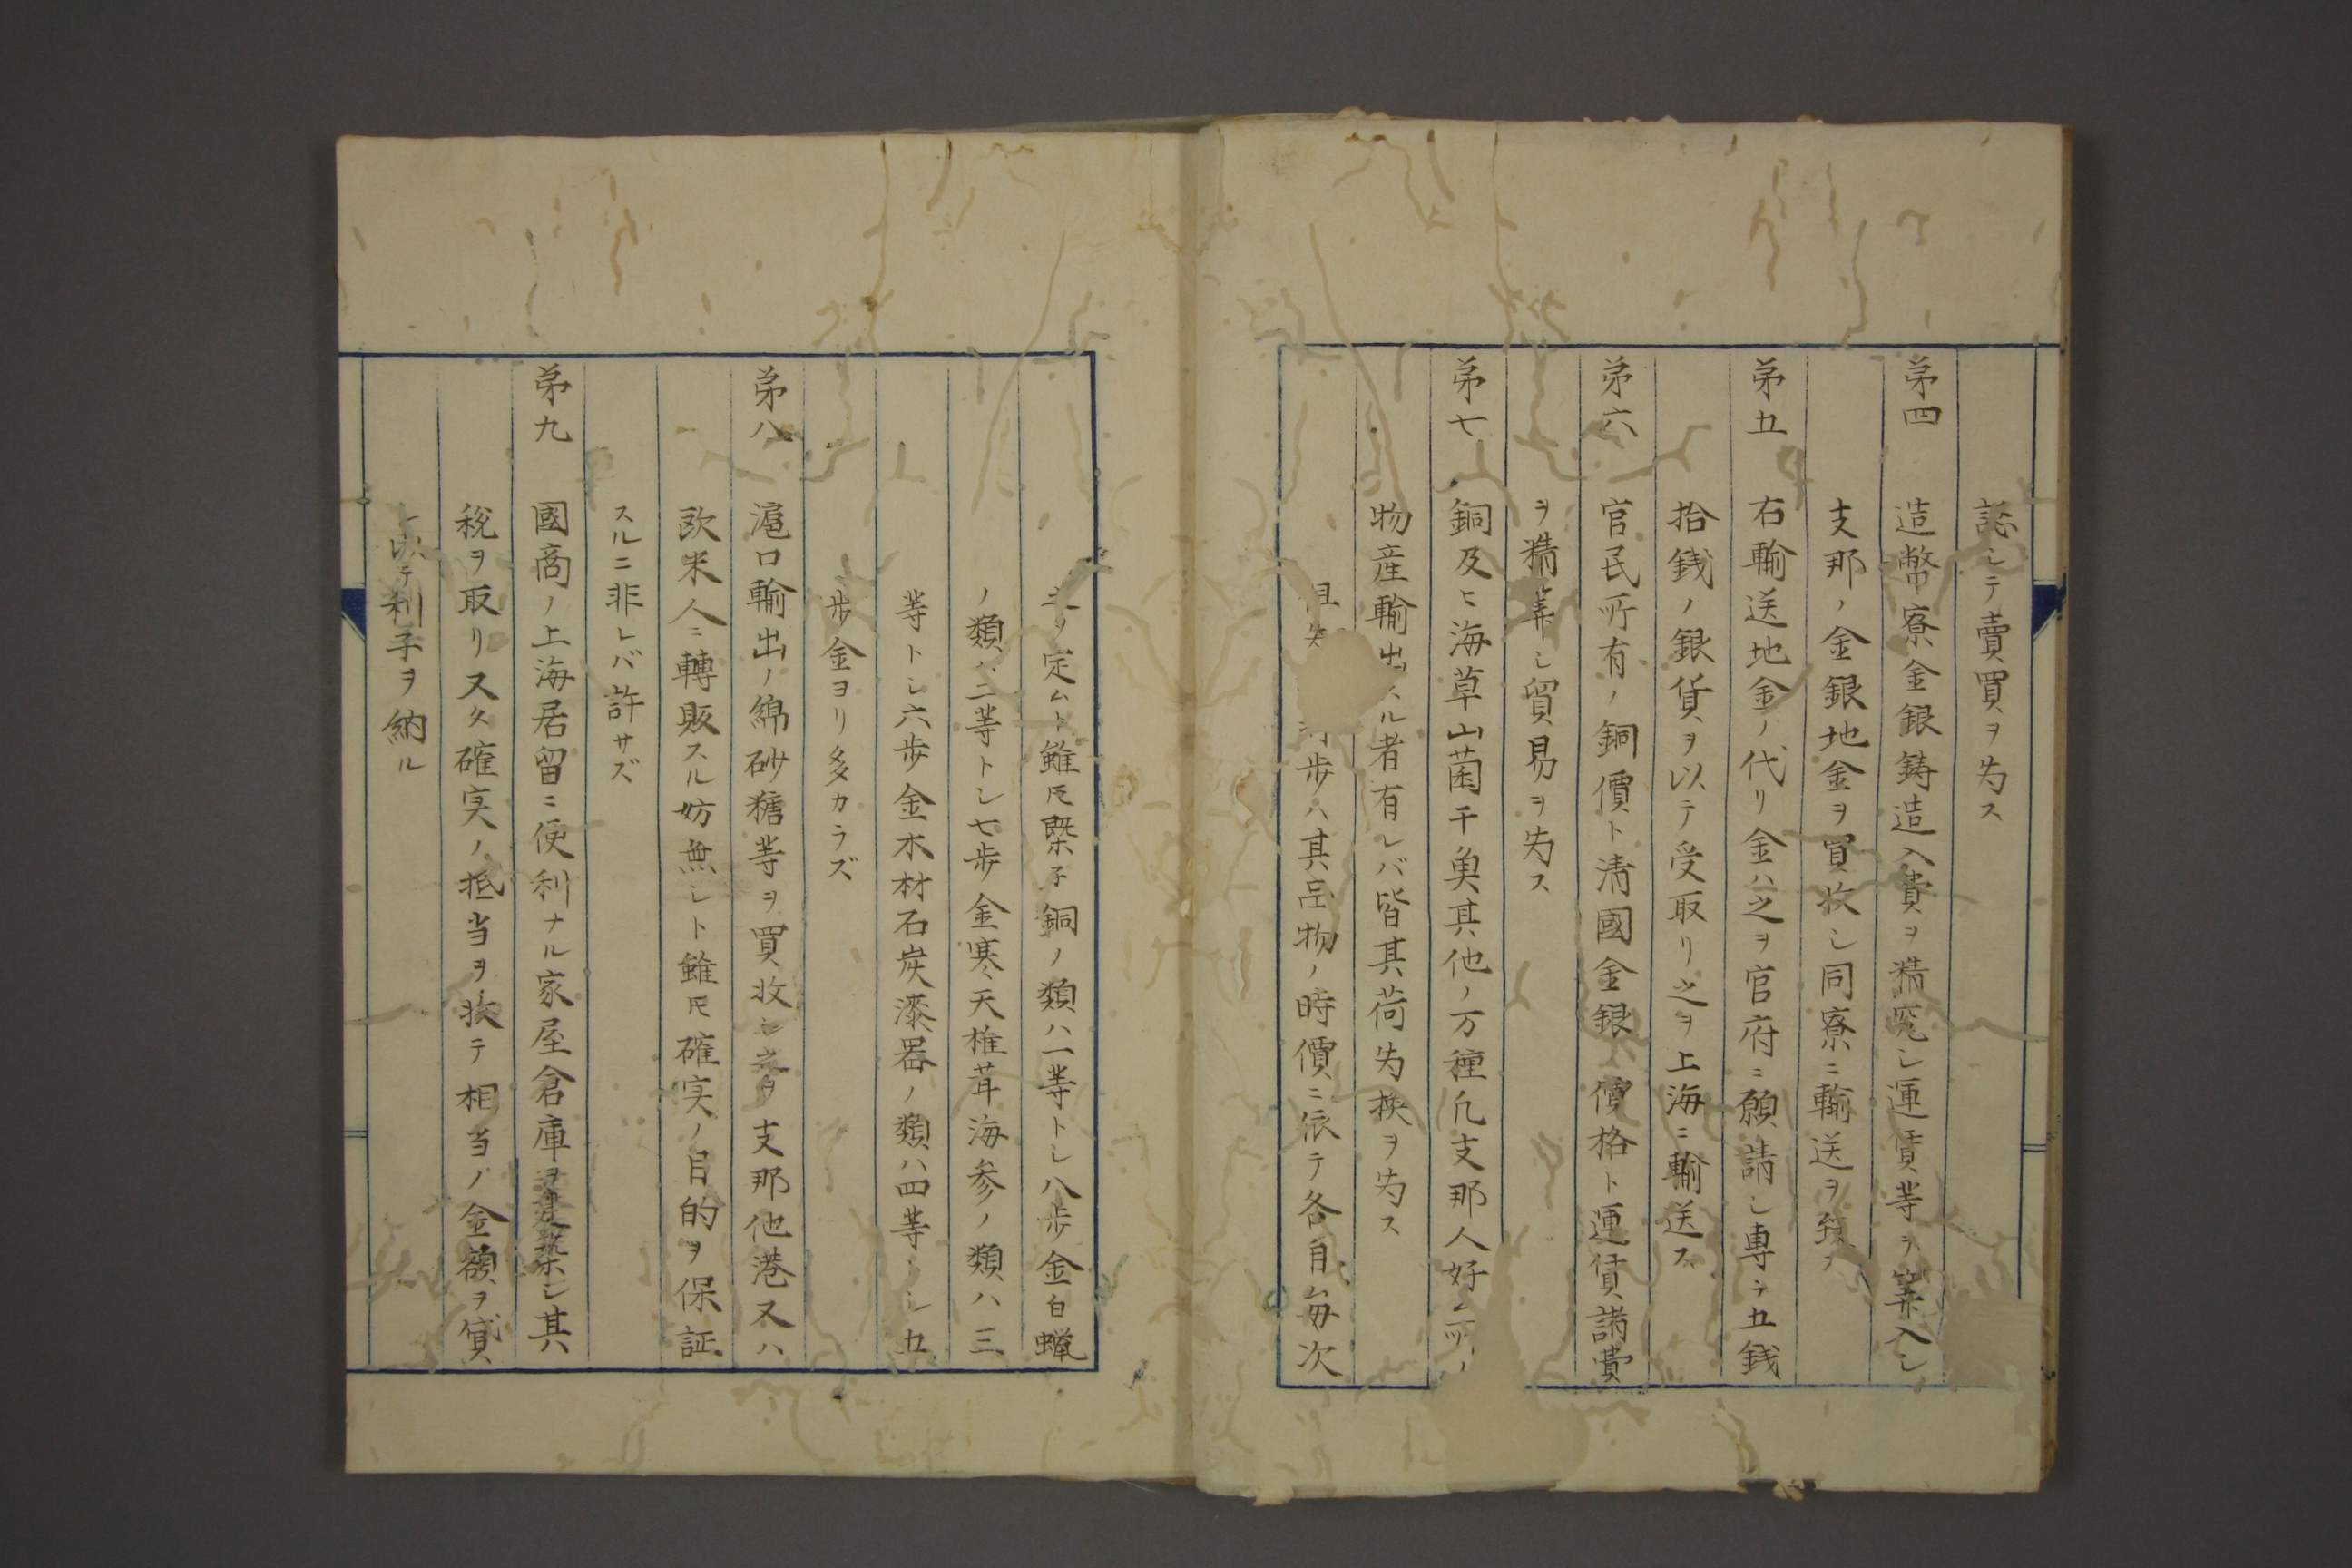 認シテ賣買ヲ为ス
苐四 造幣寮金銀鋳造入費ヲ精究シ運賃等ヲ筭入シ
支那ノ金銀地金ヲ買收シ同寮ニ輸送ヲ
苐五 右輸送地金ノ代リ金ハ之ヲ官府ニ願請シ專ラ五銭
拾銭ノ銀貨ヲ以テ受取リ之ヲ上海ニ輸送ス
苐六 官民所有ノ銅價ト清國金銀ノ價格ト運賃諸費
ヲ精筭シ貿易ヲ为ス
苐七 銅及ヒ海草山菌干魚其他ノ万種凡支那人好ム
物産輸出スル者有レバ皆其荷为換ヲ为ス
歩ハ其品物ノ時價ニ依テ各自毎次
定ムト雖𪜈棨子銅ノ類ハ一等トシ八歩金白蝋
ノ類ハ二等トシ七歩金寒天椎茸海参ノ類ハ三
等トシ六歩金木材石炭漆器ノ類ハ四等トシ五
歩金ヨリ多カラズ
苐八 滬口輸出ノ綿砂糖等ヲ買收シ之ヲ支那他港又ハ
欧米人ニ轉販スル妨無シト雖𪜈確実ノ目的ヲ保証
スルニ非レバ許サズ
苐九 國商ノ上海居留ニ便利ナル家屋倉庫ヲ建築シ其
税ヲ取リ又タ確実ノ抵当ヲ收テ相当ノ金額ヲ貸
以テ利子ヲ納ル